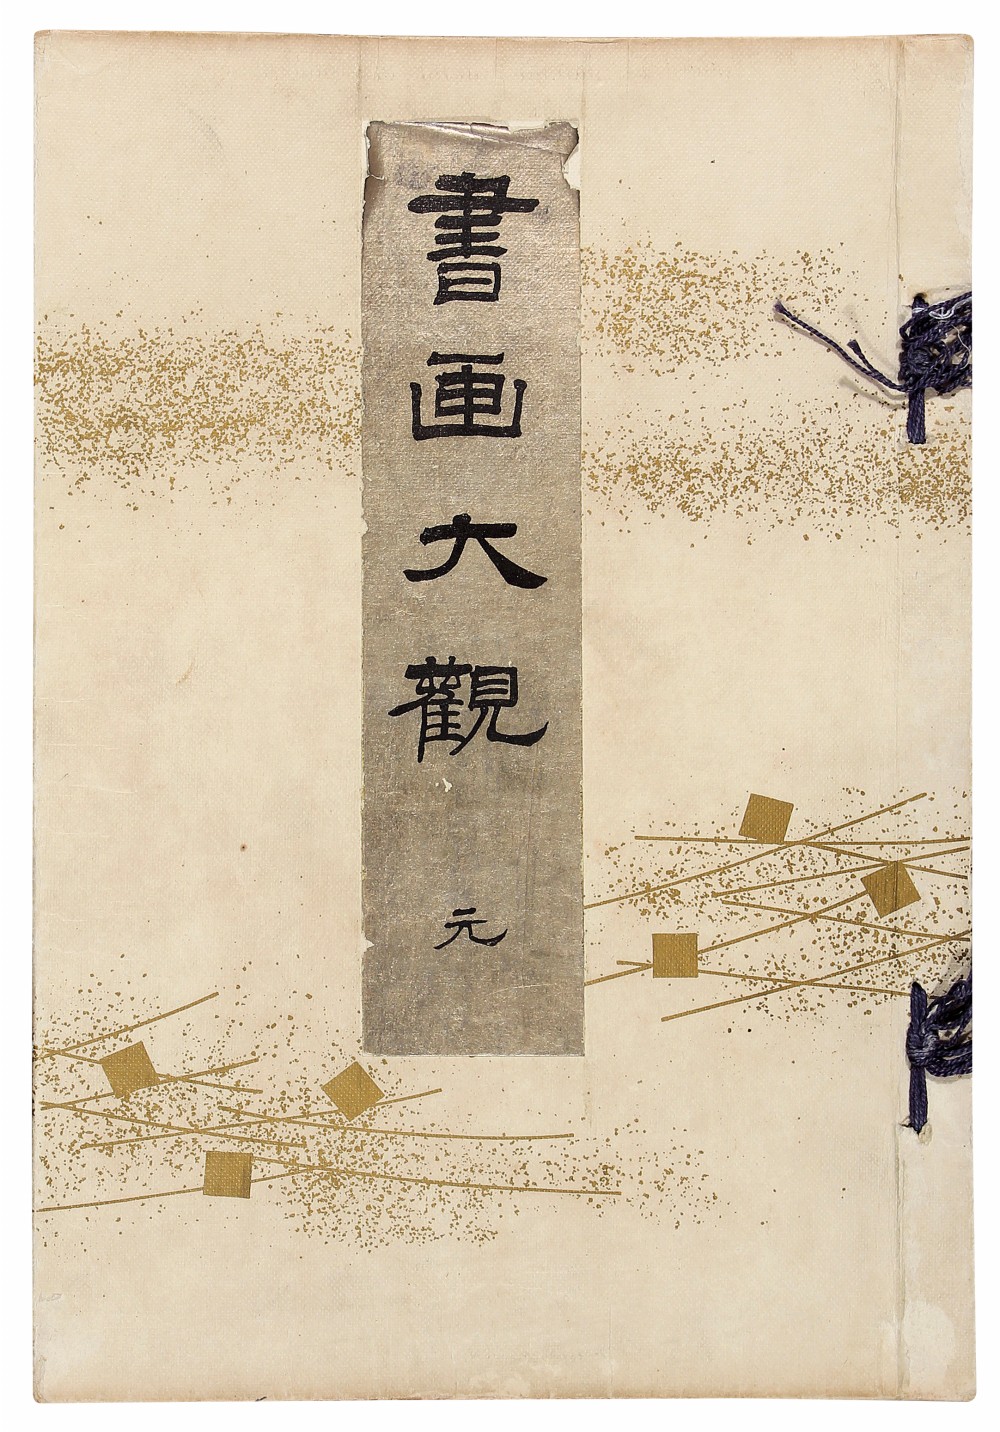 書画大觀
元